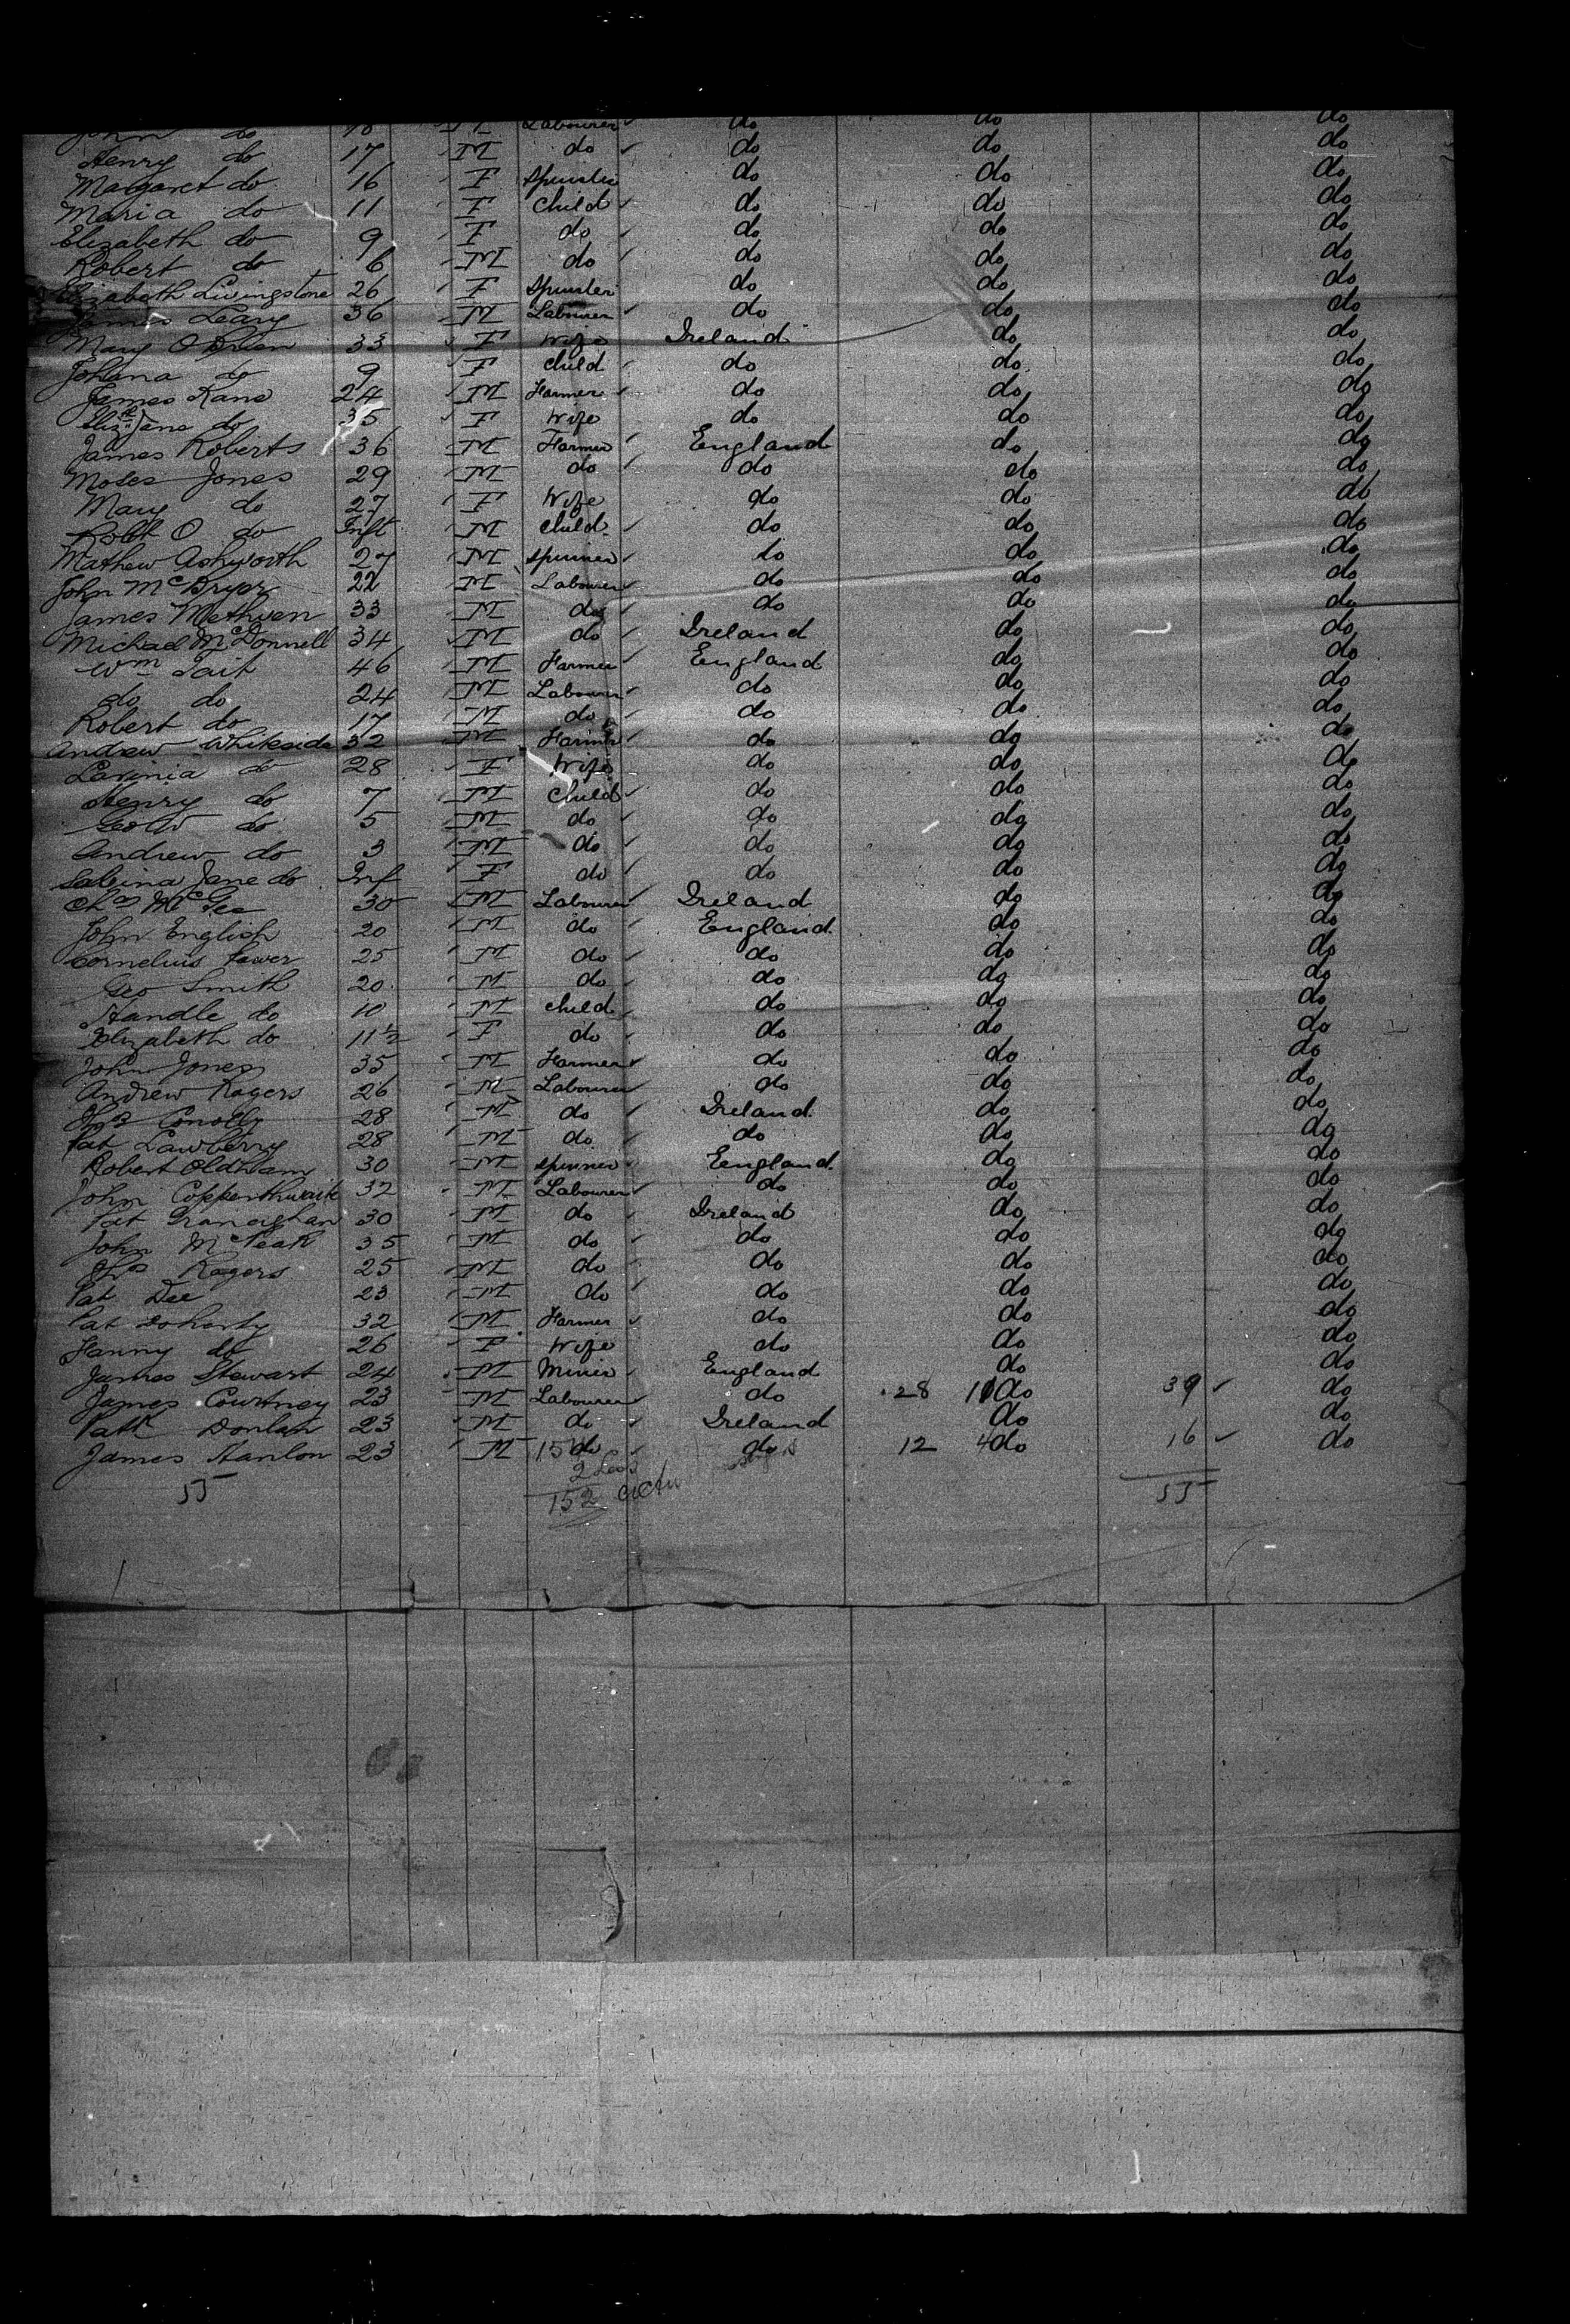 John do 18 M Labourer do do do
Henry do 17 M do do do do
Margaret do 16 F Spinster do do do
Maria do 11 F Child do do do
Elizabeth do 9 F do do do do
Robert do 6 M do do do do
Elizabeth Livingstone 26 F Spinster do do do
James Leary 36 M Labourer do do do
Mary O'Brien 33 F Wife Ireland do do
Johana do 9 F Child do do do
James Kane 24 M Farmer do do do
Elizth Jane do 35 F Wife do do do
James Roberts 36 M Farmer England do do
Moses Jones 29 M do do do do
Mary do 27 F Wife do do do
Robt O do Inft M Child do do do
Mathew Ashworth 27 M Spinner do do do
John McBryer 22 M Labourer do do do
James Methven 33 M do do do do
Michael McDonnell 34 M do Ireland do do
Wm Tait 46 M Farmer England do do
do do 24 M Labourer do do do
Robert do 17 M do do do do
Andrew Whiteside 32 M Farmer do do do
Lavinia do 28 F Wife do do do
Henry do 7 M Child do do do
Geo W do 5 M do do do do
Andrew do 3 M do do do do
Sabina Jane do Inf F do do do do
Chas McGee 30 M Labourer Ireland do do
John English 20 M do England do do
Cornelius Power 25 M do do do do
Geo Smith 20 M do do do do
Handle do 10 M Child do do do
Elizabeth do 11½ F do do do do
John Jones 35 M Farmer do do do
Andrew Rogers 26 M Labourer do do do
Ths Conolly 28 M do Ireland do do
Pat Lawberry 28 M do do do do
Robert Oldham 30 M Spinner England do do
John Copperthwaite 32 M Labourer do do do
Pat Granaghan 30 M do Ireland do do
John McPeak 35 M do do do do
Ths Rogers 25 M do do do do
Pat Dee 23 M do do do do
Pat Doherty 32 M Farmer do do do
Fanny do 26 F Wife do do do
James Stewart 24 M Miner England do do
James Courtney 23 M Labourer do 28 11 do 39 do
Patk Donlan 23 M do Ireland do do
James Hanlon 23 M do do 12 4 do 16 do
55 152 55